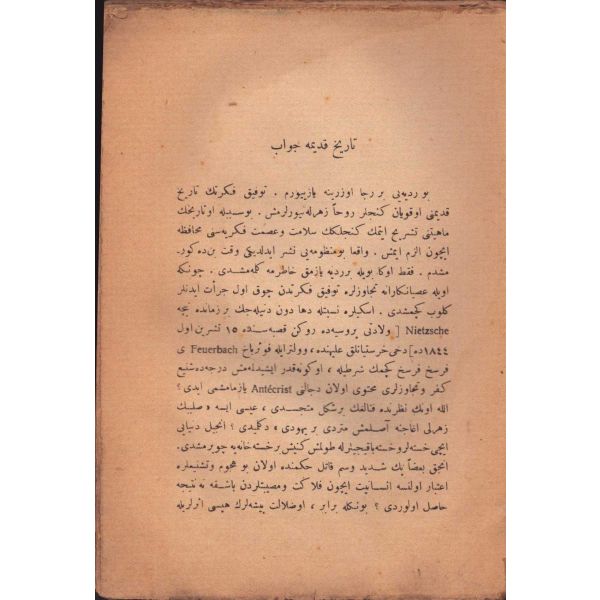 تاریخ قدیمه جواب
بو ردیه‌یی بر رجا اوزرینه یازییورم . توفیق فکرتك تاریخ
قدیمنی اوقویان کنجلر روحاً زهرله‌نیورلرمش . بوسببله اوتاریخك
ماهیتنی تشریح ایتمك کنجلكك سلامت وعصمت فکریه‌سنی محافظه
ایچون الزم ایمش . واقعا بومنظومه‌یی نشر ایدلدیکی وقت بن‌ده کور-
مشدم . فقط اوکا بویله برردیه یازمق خاطرمه کلمه‌مشدی . چونکه
اویله عصیانکارانه تجاوزلره توفیق فکرتدن چوق اول جرأت ایدنلر
کلوب کچمشدی . اسکیلره نسبتله دها دون دنیله‌جك بر زمانده نیچه
Nietzsche [ ولادتی پروسیه‌ده روکن قصبه‌سنده ١٥ تشرین اول
١٨٤٤ده] دخی خرستیانلق علیهنده ، وولترایله فوئرباخ Feuerbach ی
فرسخ فرسخ کچمك شرطیله ، اوکونه‌قدر ایشیدلمه‌مش درجه‌ده شنیع
کفر وتجاوزلری محتوی اولان دجالنی Antécrist یازمامشمی ایدی ؟
الله اونك نظرنده فنالغك برشکل متجسدی ، عیسی ایسه « صلیبك
زهرلی اغاجنه آصلمش متردی بر یهودی » دکلمیدی ؟ انجیل دنیایی
ایچی خسته‌لر و خسته‌باقیجیلرله طولمش کنیش برخسته‌خانه‌یه چویرمشدی.
انجق بعضاً پك شدید وسم قاتل حکمنده اولان بو هجوم وتشنیعلره
اعتبار اولنسه انسانیت ایچون فلاکت ومصیبتلردن باشقه نه نتیجه
حاصل اولوردی ؟ بونکله برابر ، اوضلالت پیشه‌لرك هپسی اثرلریله